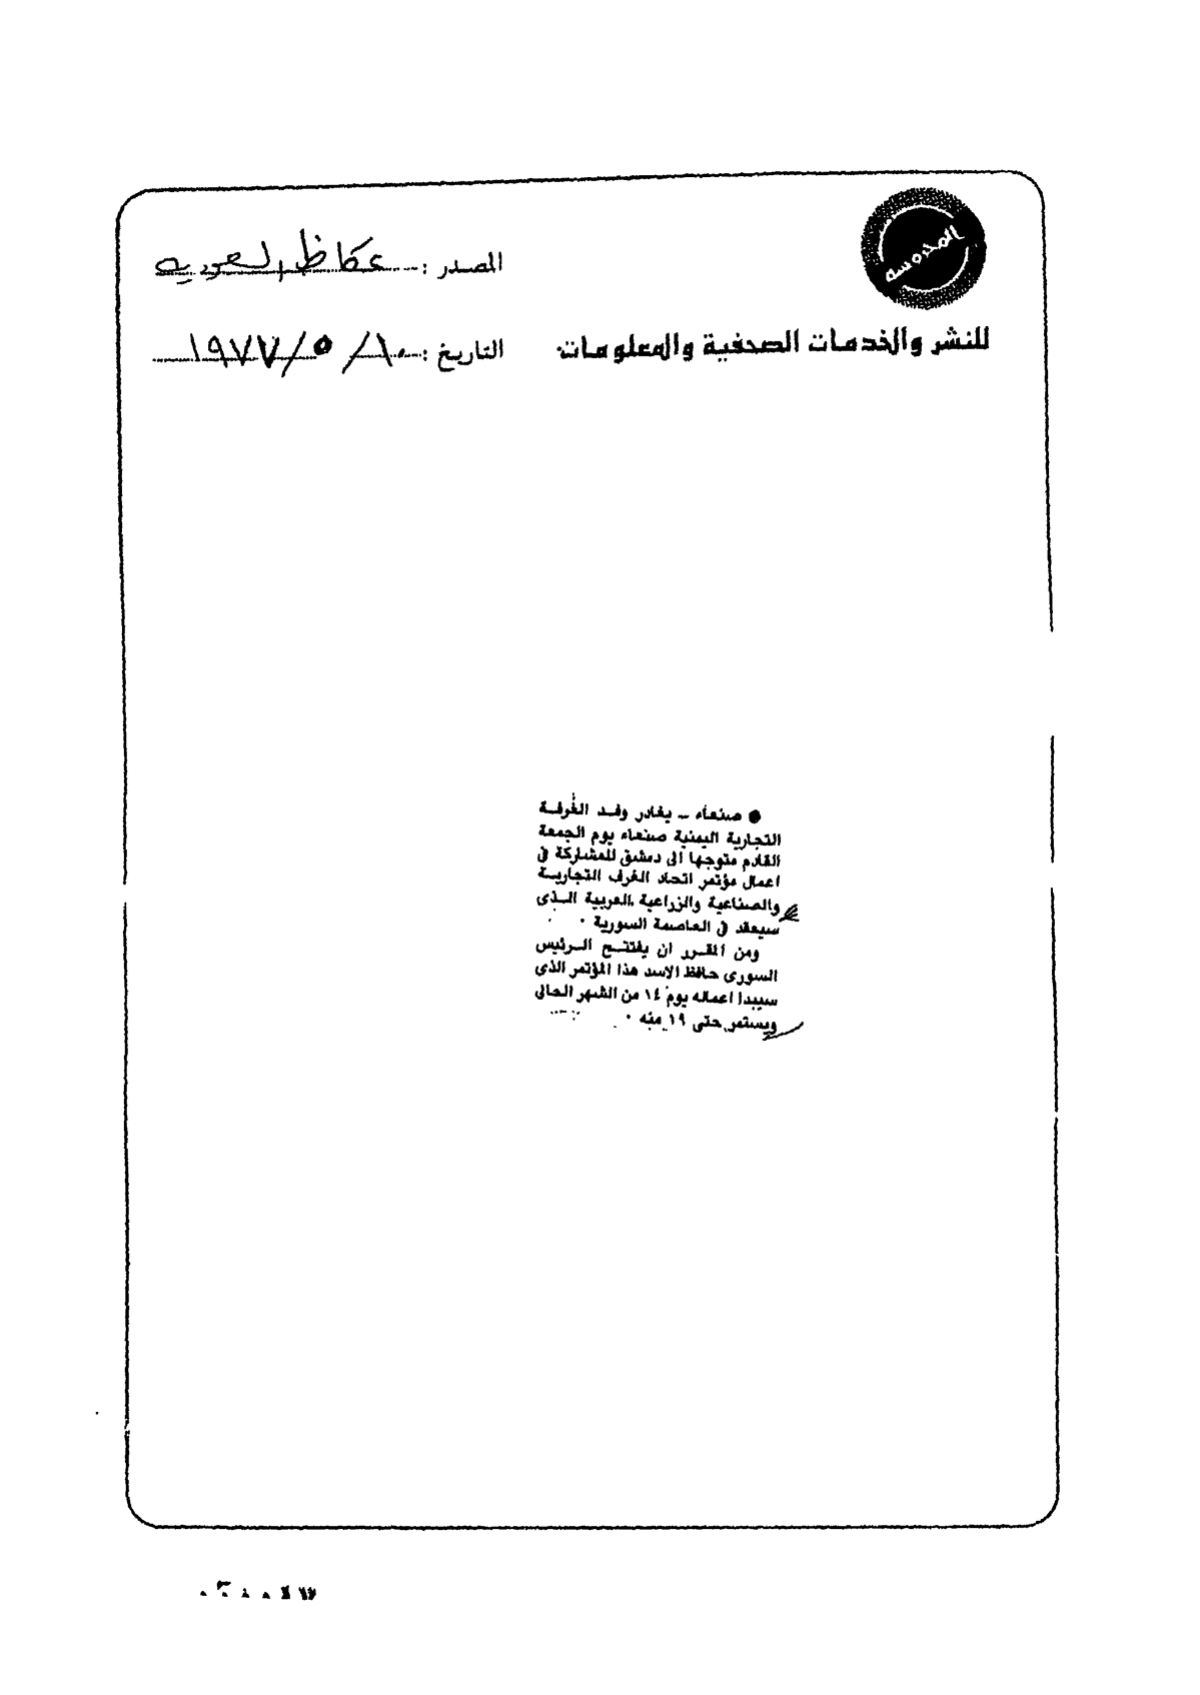 المحروسة
للنشر والخدمات الصحفية والمعلومات
المصدر : عكاظ السعودية
التاريخ : ١٠ / ٥ / ١٩٧٧
● صنعاء ـ يغادر وفد الغرفة
التجارية اليمنية صنعاء يوم الجمعة
القادم متوجها الى دمشق للمشاركة في
اعمال مؤتمر اتحاد الغرف التجارية
والصناعية والزراعية العربية الذى
سيعقد في العاصمة السورية ٠
ومن المقرر ان يفتتح الرئيس
السورى حافظ الاسد هذا المؤتمر الذى
سيبدا اعماله يوم ١٤ من الشهر الحالى
ويستمر حتى ١٩ منه ٠